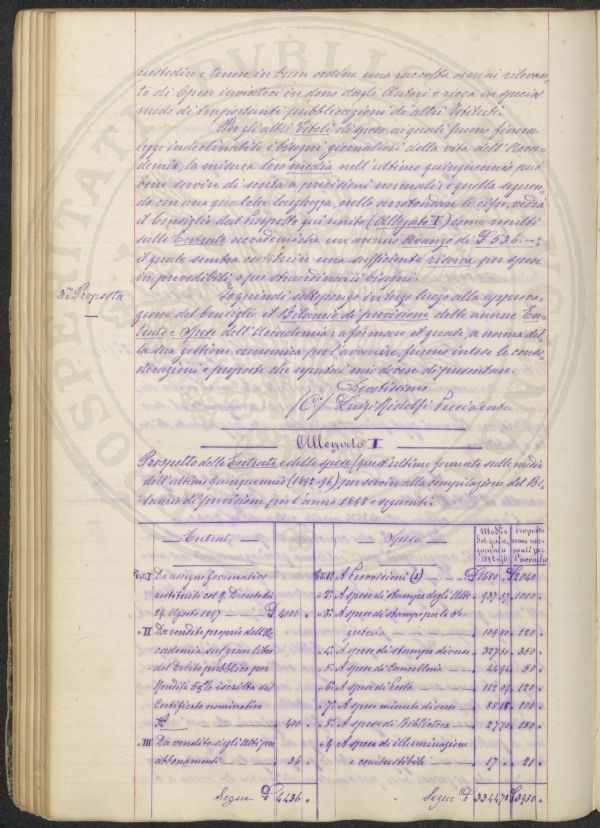 custodire e tenere in buon ordine una raccolta ormai rilevan-
te di Opere inviateci in dono dagli Autori e ricca in special
modo di importanti pubblicazioni di altri Istituti.
Per gli altri Titoli di spesa, ai quali furono finora
legge indeclinabile i bisogni giornalieri della vita dell'Acca-
demia, la misura loro media nell'ultimo quinquennio può
bene servire di scorta a previsioni normali: e quella seguen-
do con una qualche larghezza, nello arrotondare le cifre, vedrà
il Consiglio dal Prospetto qui unito (Allegato I) come resulti
sulle Entrate accademiche un annuo Avanzo di £ 536.—;
il quale sembra costituire una sufficiente riserva per spese
imprevedibili o per straordinarii bisogni.
3ª Proposta
Io quindi sottopongo in terzo luogo alla approva-
zione del Consiglio il Bilancio di previsione delle annue En-
trate e Spese dell'Accademia; a formare il quale, a norma del-
la sua gestione economica per l'avvenire, furono intese le consi-
derazioni e proposte che reputai mio dovere di presentare.
Devotissimo
Luigi Ridolfi Presidente
Allegato I
Prospetto delle Entrate e delle spese (quest'ultime formate sulle medie
dell'ultimo quinquennio (1892-96), per servire alla compilazione del Bi-
lancio di previsione per l'anno 1898 e seguenti.
Entrate
Spese
Media del quinquennio 1892-96
Proposte come normali per l'avvenire
Tit. I Da assegno Governativo
restituito col R. Decreto di
29 Agosto 1897 — £ 4000 "
" II Da rendita propria dell'Ac-
cademia sul gran libro
del Debito pubblico per
Rendita 5% iscritta sul
Certificato nominativo
400 "
" III Da vendita degli Atti per
abbonamenti — 36 "
Segue £ 4436 "
Tit. 1º A Provvisioni (1) — £ 1680 " £ 2040 "
" 2º A spese di stampa degli Atti " 937 1000 "
" 3º A spese di stampe per la Se-
greteria — 109 80 120 "
" 4º A spese di stampe diverse 327 50 350 "
" 5º A spese di Cancelleria — 44 94 50 "
" 6º A spese di Posta — " 112 09 120 "
" 7º A spese minute diverse — " 88 18 100 "
" 8º A spese di Biblioteca — " 27 70 150 "
" 9 A spese di illuminazione
e combustibile — " 17 " 20 "
Segue £ 3344 70 £ 3950 "